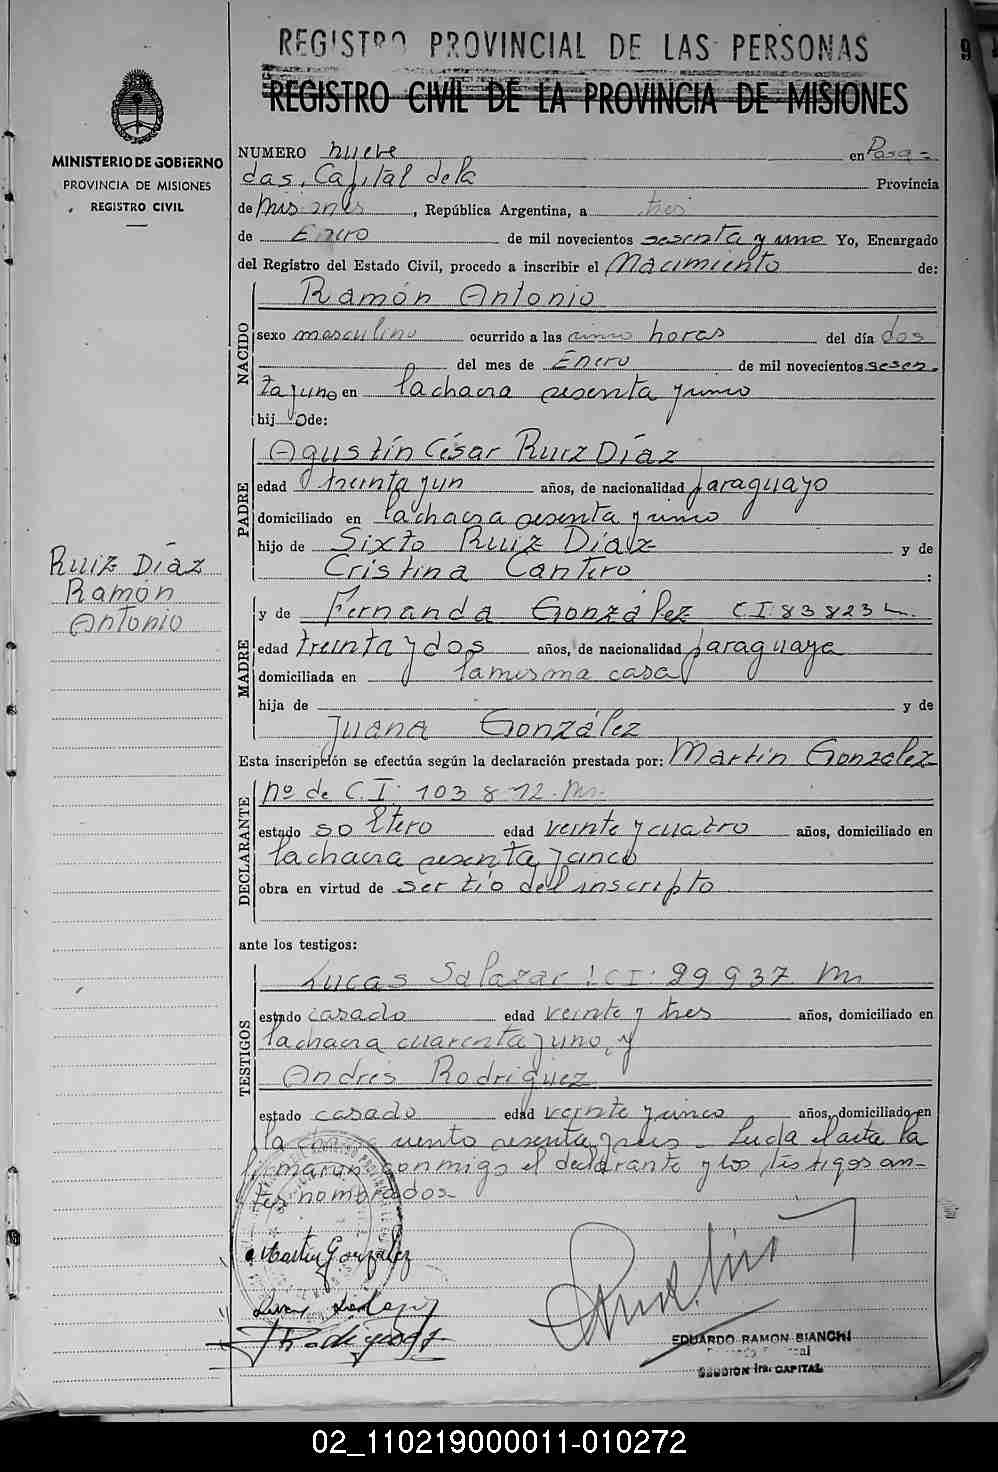 REGISTRO PROVINCIAL DE LAS PERSONAS
9
REGISTRO CIVIL DE LA PROVINCIA DE MISIONES
MINISTERIO DE GOBIERNO
PROVINCIA DE MISIONES
REGISTRO CIVIL
NUMERO nueve en Posa=
das, Capital de la Provincia
de Misiones, República Argentina, a tres
de Enero de mil novecientos sesenta y uno Yo, Encargado
del Registro del Estado Civil, procedo a inscribir el Nacimiento de:
NACIDO
Ramón Antonio
sexo masculino ocurrido a las cinco horas del día dos
del mes de Enero de mil novecientos sesen-
ta y uno en la chacra sesenta y cinco
hij o de:
PADRE
Agustín César Ruiz Díaz
edad treinta y un años, de nacionalidad paraguayo
domiciliado en la chacra sesenta y cinco
hijo de Sixto Ruiz Díaz y de
Cristina Cantero :
Ruiz Díaz
Ramón
Antonio
MADRE
y de Fernanda González CI 83823
edad treinta y dos años, de nacionalidad paraguaya
domiciliada en la misma casa
hija de y de
Juana González
Esta inscripción se efectúa según la declaración prestada por: Martín González
DECLARANTE
Nº de C.I. 103872. Ms.
estado soltero edad veinte y cuatro años, domiciliado en
la chacra sesenta y cinco
obra en virtud de ser tío del inscripto
ante los testigos:
TESTIGOS
Lucas Salazar CI: 99937 M
estado casado edad veinte y tres años, domiciliado en
la chacra cuarenta y uno, y
Andres Rodriguez
estado casado edad veinte y cinco años, domiciliado en
la chacra ciento sesenta y seis - Leida el acta la
firmaron conmigo el declarante y los testigos an-
tes nombrados-
Martin González
EDUARDO RAMON BIANCHI
SECCION 1ra. CAPITAL
02_110219000011-010272